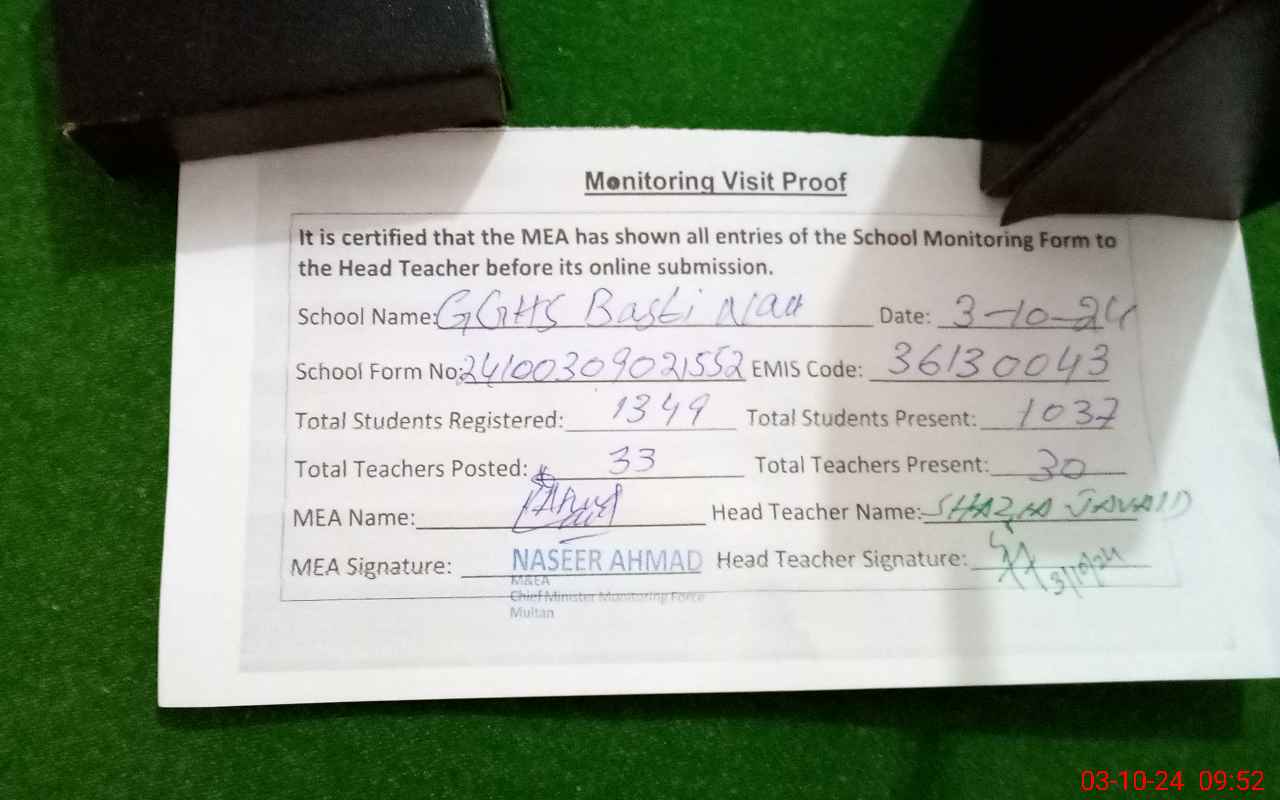 Monitoring Visit Proof
It is certified that the MEA has shown all entries of the School Monitoring Form to
the Head Teacher before its online submission.
School Name: GGHS Basti Nau Date: 3-10-24
School Form No: 24100309021552 EMIS Code: 36130043
Total Students Registered: 1349 Total Students Present: 1037
Total Teachers Posted: 33 Total Teachers Present: 30
MEA Name: Head Teacher Name: SHAZIA JAVAID
MEA Signature: NASEER AHMAD Head Teacher Signature: 3/10/24
M&EA
Chief Minister Monitoring Force
Multan
03-10-24 09:52